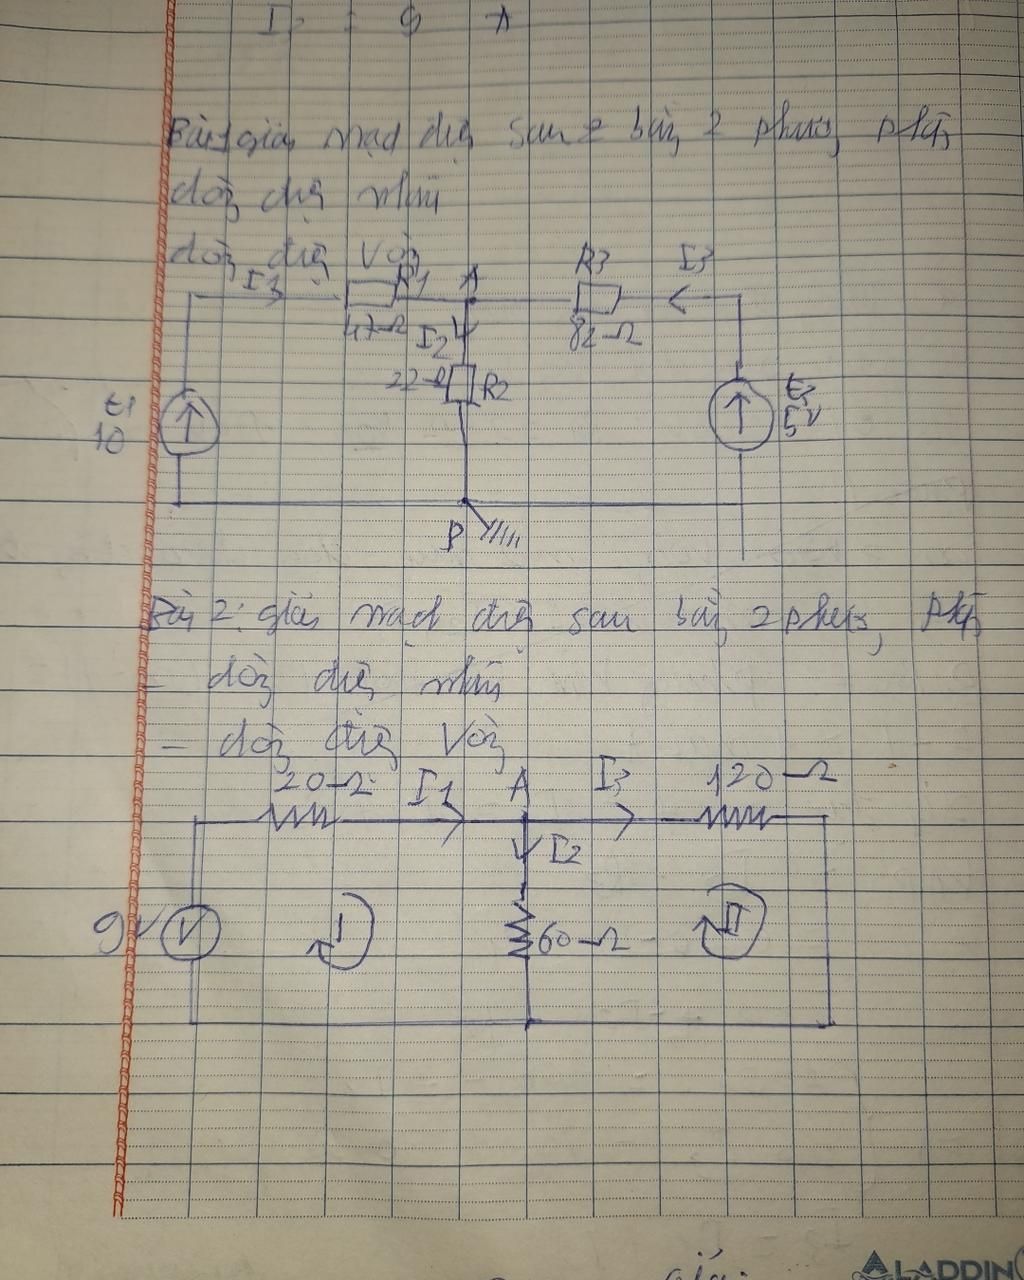 Bài 1 giải mạch điện sau = bằng 2 phương pháp
dòng điện nhánh
dòng điện vòng
I1 R1 A R3 I3
47Ω I2 82Ω
22Ω R2
E1
10
5V
B
Bài 2: giải mạch điện sau bằng 2 phương pháp
- dòng điện nhánh
- dòng điện vòng
20Ω I1 A I3 120Ω
I2
9V V I 60Ω II
giải:
ALADDIN